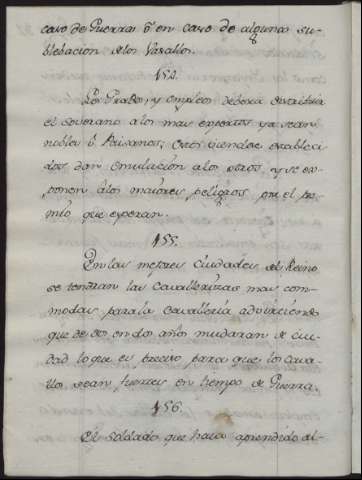 caso de Guerra ò en caso de alguna su-
blebacion de los Vasallos.
154.
Los Grados, y empleos deberà distribuir
el soverano alos mas expertos ya sean
nobles ò Paisanos; Estos viendose estableci-
dos dan emulacion alos otros, y se ex-
ponen alos maiores peligros por el pre-
mio que esperan.
155.
En las mejores Ciudades del Reino
se tendran las Cavallerizas mas com-
modas para la Cavalleria advirtiendo
que de dos en dos años mudaràn de ciu-
dad lo que es preciso para que los cava-
llos sean fuertes en tiempo de Guerra.
156.
El soldado que haia aprendido al-